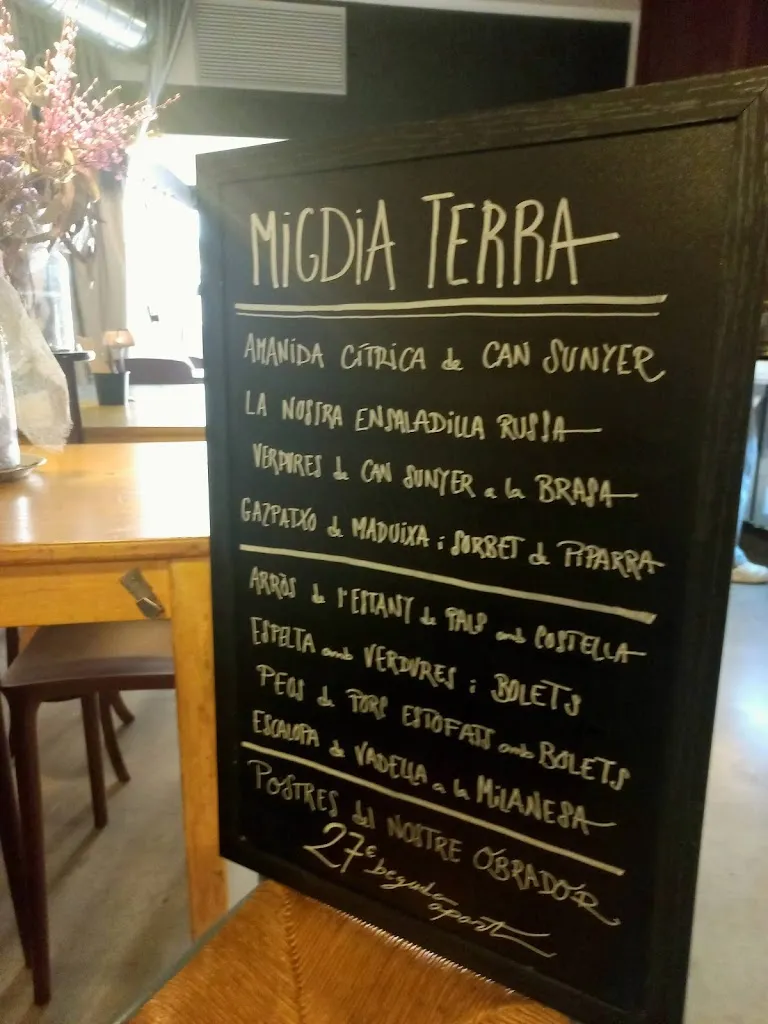 MIGDIA TERRA
AMANIDA CÍTRICA de CAN SUNYER
LA NOSTRA ENSALADILLA RUSSA
VERDURES de CAN SUNYER a la BRASA
GAZPATXO de MADUIXA i SORBET de PIPARRA
ARRÒS de l'ESTANY de PALS amb COSTELLA
ESPELTA amb VERDURES i BOLETS
PEUS de PORC ESTOFATS amb BOLETS
ESCALOPA de VADELLA a la MILANESA
POSTRES del NOSTRE OBRADOR
27€
beguda
apart